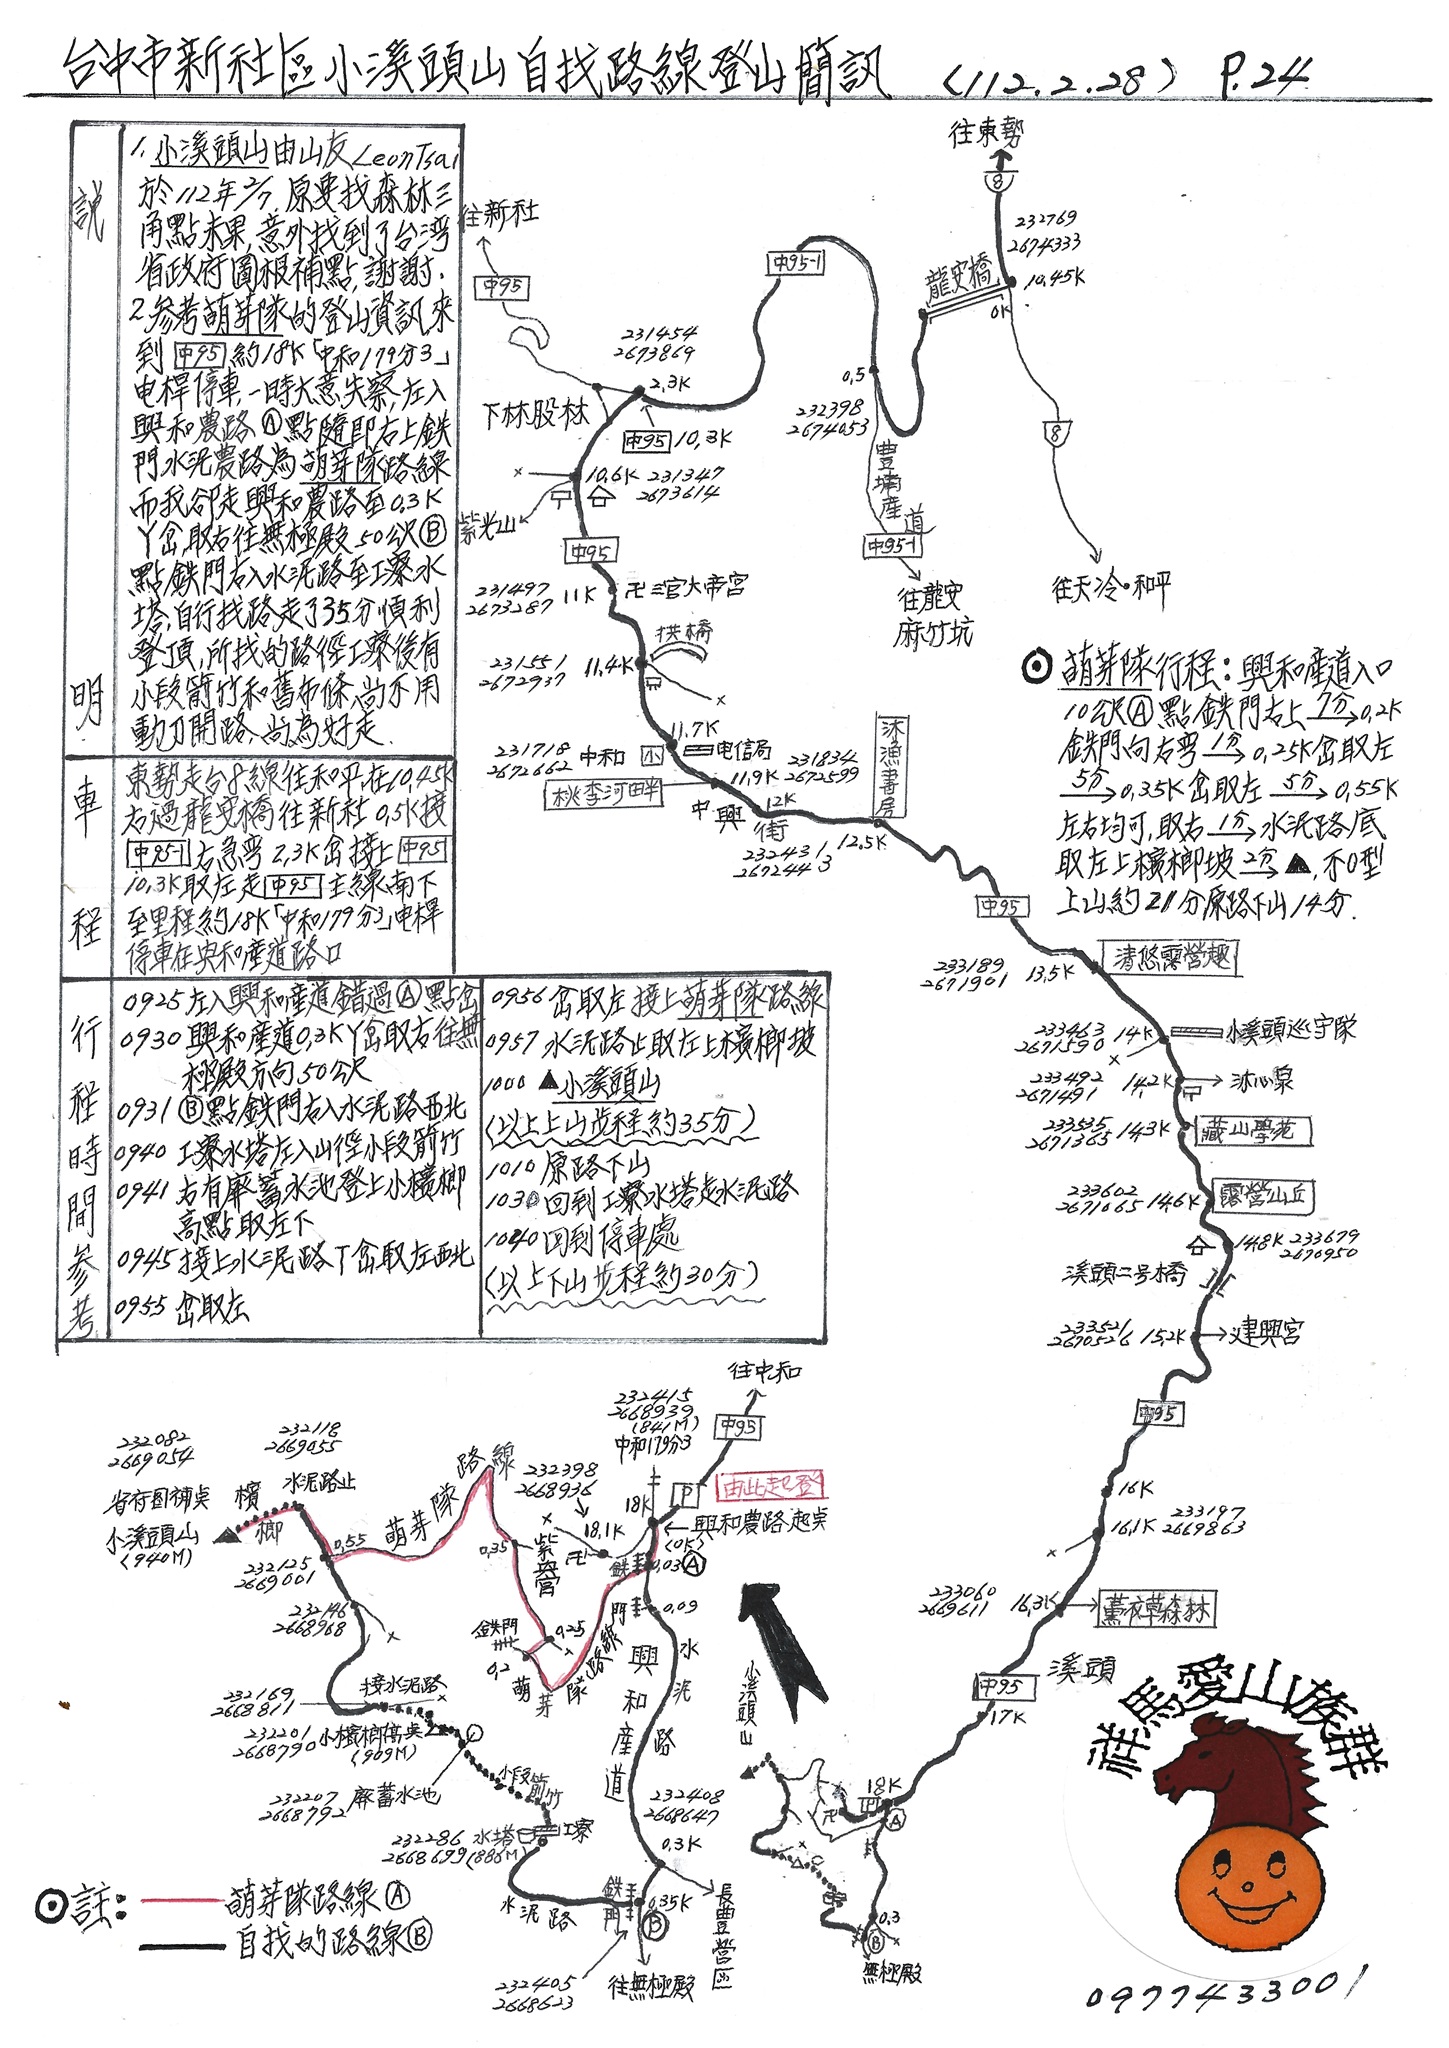 台中市新社區小溪頭山自找路線登山簡訊 (112.2.28) P.24
說明
1. 小溪頭山由山友LeonTsai
於112年2/7.原要找森林三
角點未果,意外找到了台灣
省政府圖根補點,謝謝.
2.參考萌芽隊的登山資訊來
到 中95 約18K「中和179分3」
电桿停車,一時大意失察,左入
興和農路Ⓐ點隨即右上鉄
門水泥農路為萌芽隊路線
而我卻走興和農路至0.3K
丫岔取右往無極殿50公尺Ⓑ
點鉄門右入水泥路至工寮水
塔,自行找路走了35分順利
登頂,所找的路徑工寮後有
小段箭竹和舊布條,尚不用
動刀開路,尚為好走.
車程
東勢走台8線往和平在10.45K
右過龍安橋往新社0.5K接
中95-1 右急弯2.3K岔接上 中95
10.3K取左走 中95 主線南下
至里程約18K「中和179分3」电桿
停車在興和產道路口
行程時間參考
0925 左入興和產道錯過Ⓐ點岔
0930 興和產道0.3K丫岔取右往無
極殿方向50公尺
0931 Ⓑ點鉄門右入水泥路西北
0940 工寮水塔左入山徑小段箭竹
0941 右有廢蓄水池登上小檳榔
高點取左下
0945 接上水泥路丁岔取左西北
0955 岔取左
0956 岔取左接上萌芽隊路線
0957 水泥路止取左上檳榔坡
1000 ▲小溪頭山
(以上上山步程約35分)
1010 原路下山
1030 回到工寮水塔走水泥路
1040 回到停車處
(以上下山步程約30分)
往東勢
8
232769
2674333
10.45K
龍安橋
0K
往新社
中95
中95-1
231454
2673869
2.3K
下林股林
中95 10.3K
0.5
232398
2674053
豐埔産道
中95-1
往龍安
麻竹坑
8
往天冷·和平
10.6K 231347
2673614
紫光山
中95
231497
2673287
11K
卍三官大帝宮
拱橋
231551
2672937
11.4K
11.7K
231718
2672662
中和 小
电信局
231834
2672599
11.9K
桃李河畔
中興街
12K
232431
2672443
沐漁書房
12.5K
⊙萌芽隊行程:興和産道入口
10公尺Ⓐ點鉄門右上 7分→0.2K
鉄門向右弯 1分→0.25K岔取左
5分→0.35K岔取左 5分→0.55K
左右均可,取右 1分→水泥路底
取左上檳榔坡 2分→▲,不O型
上山約21分原路下山14分.
中95
233189
2671901
13.5K
清悠露營趣
233463
2671590
14K
小溪頭巡守隊
233492
2671491
14.2K
沐心泉
233535
2671365
14.3K
藏山學苑
233602
2671065
14.6K
露營山丘
14.8K 233679
2670950
溪頭二号橋
233521
2670526
15.2K
建興宮
中95
16K
16.1K 233197
2669863
233060
2669611
16.3K
薰衣草森林
溪頭
中95
17K
18K
Ⓐ
卍
0.3
Ⓑ
無極殿
小溪頭山
往中和
中95
232415
2668939
(841M)
中和179分3
P
由此起登
18K
興和農路起桌
(0K)
0.03 Ⓐ
鉄門
0.09
232398
2668936
18.1K
卍
232082
2669054
232118
2669055
水泥路止
省府图補桌
小溪頭山
(940M)
檳榔
萌芽隊路線
0.55
0.35
0.25
0.2
鉄門
萌芽隊路線
232125
2669001
232146
2668968
接水泥路
232169
2668811
232201
2668790
小檳榔高桌
(909M)
232207
2668792
廢蓄水池
小段箭竹
232286
2668699
水塔
(886M)
工寮
水泥路
興和産道
水泥路
232408
2668647
0.3K
0.35K
鉄門
Ⓑ
長豐營區
232405
2668623
往無極殿
⊙註: 萌芽隊路線Ⓐ
自找的路線Ⓑ
祥馬愛山族群
0977433001